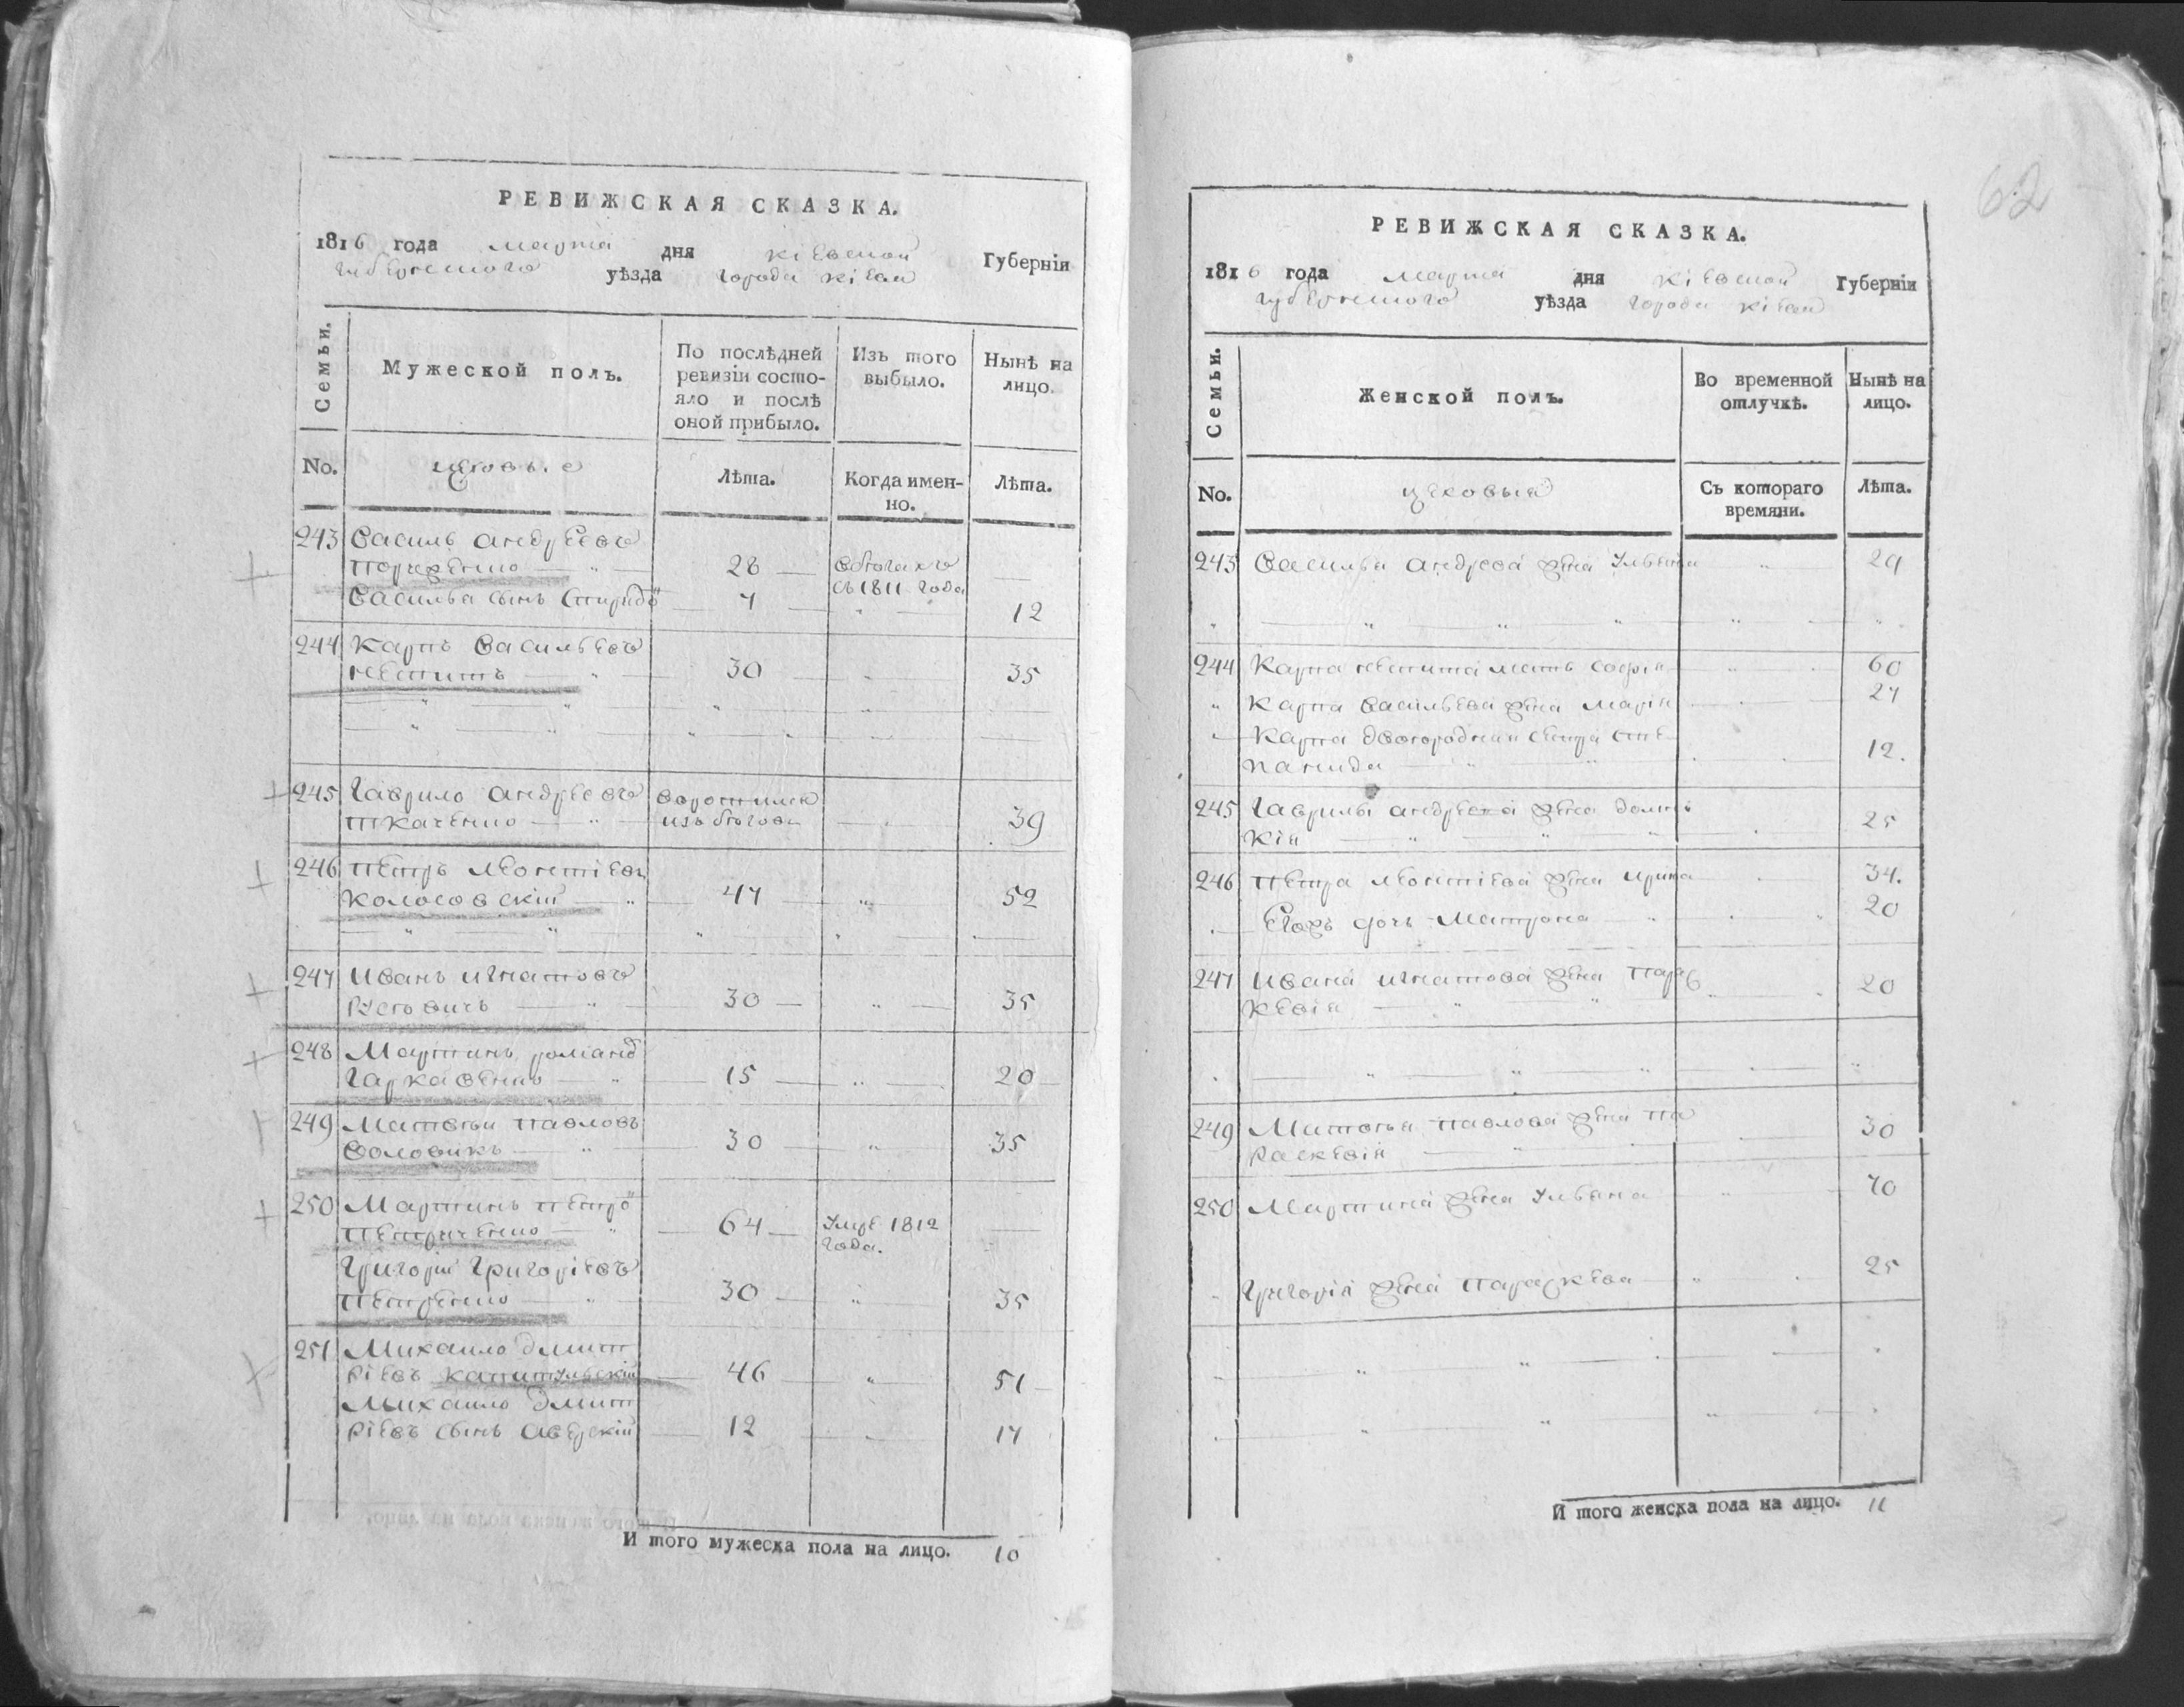 62
РЕВИЖСКАЯ СКАЗКА.
1816 года марта дня Кіевской Губерніи
губернского уѣзда города Кіева
Семьи.
Мужеской полъ.
По послѣдней ревизіи состо-
яло и послѣ
оной прибыло.
Изъ того
выбыло.
Нынѣ на
лицо.
No.
Лѣта.
Когда имен-
но.
Лѣта.
243 Василь Андреевъ
28 в бегахъ
съ 1811 года
Василья сынъ Спиридо 7 12
244 Карпъ Васильевъ
30 35
245 Гаврило Андреевъ воротился
Ткаченко изъ бегов 39
246 Петръ Леонтіевъ
Колосовскій 47 52
247 Иванъ Игнатовъ
30 35
248 Мартинъ романо
Гаркавенко 15 20
249 Матвеи Павловъ
Воловикъ 30 35
250 Мартинъ Петро
Петриченко 64 умре 1812
года.
Григорій Григоріевъ
Петренко 30 35
251 Михаило Дмит
ріевъ Капитульскій 46 51
Михаило Дмит
ріевъ сынъ Аверкій 12 17
И того мужеска пола на лицо. 10
РЕВИЖСКАЯ СКАЗКА.
1816 года марта дня Кіевской Губерніи
губернского уѣзда города Кіева
Семьи.
Женской полъ.
Во временной
отлучкѣ.
Нынѣ на
лицо.
No.
цеховыя
Съ котораго
времяни.
Лѣта.
243 Василья Андреева жена Ульяна 29
244 Карпа мать Софія 60
Карпа Васильева жена Марія 27
Карпа двоюродная сестра Сте
панида 12.
245 Гаврилы Андреева жена Домни
кія 25
246 Петра Леонтіева жена Ирина 34.
Егожъ дочь Матрона 20
247 Ивана Игнатова жена Парас
кевія 20
249 Матвея Павлова жена Па
раскевія 30
250 Мартина жена Ульяна 70
Григорія жена Параскева 25
И того женска пола на лицо. 11